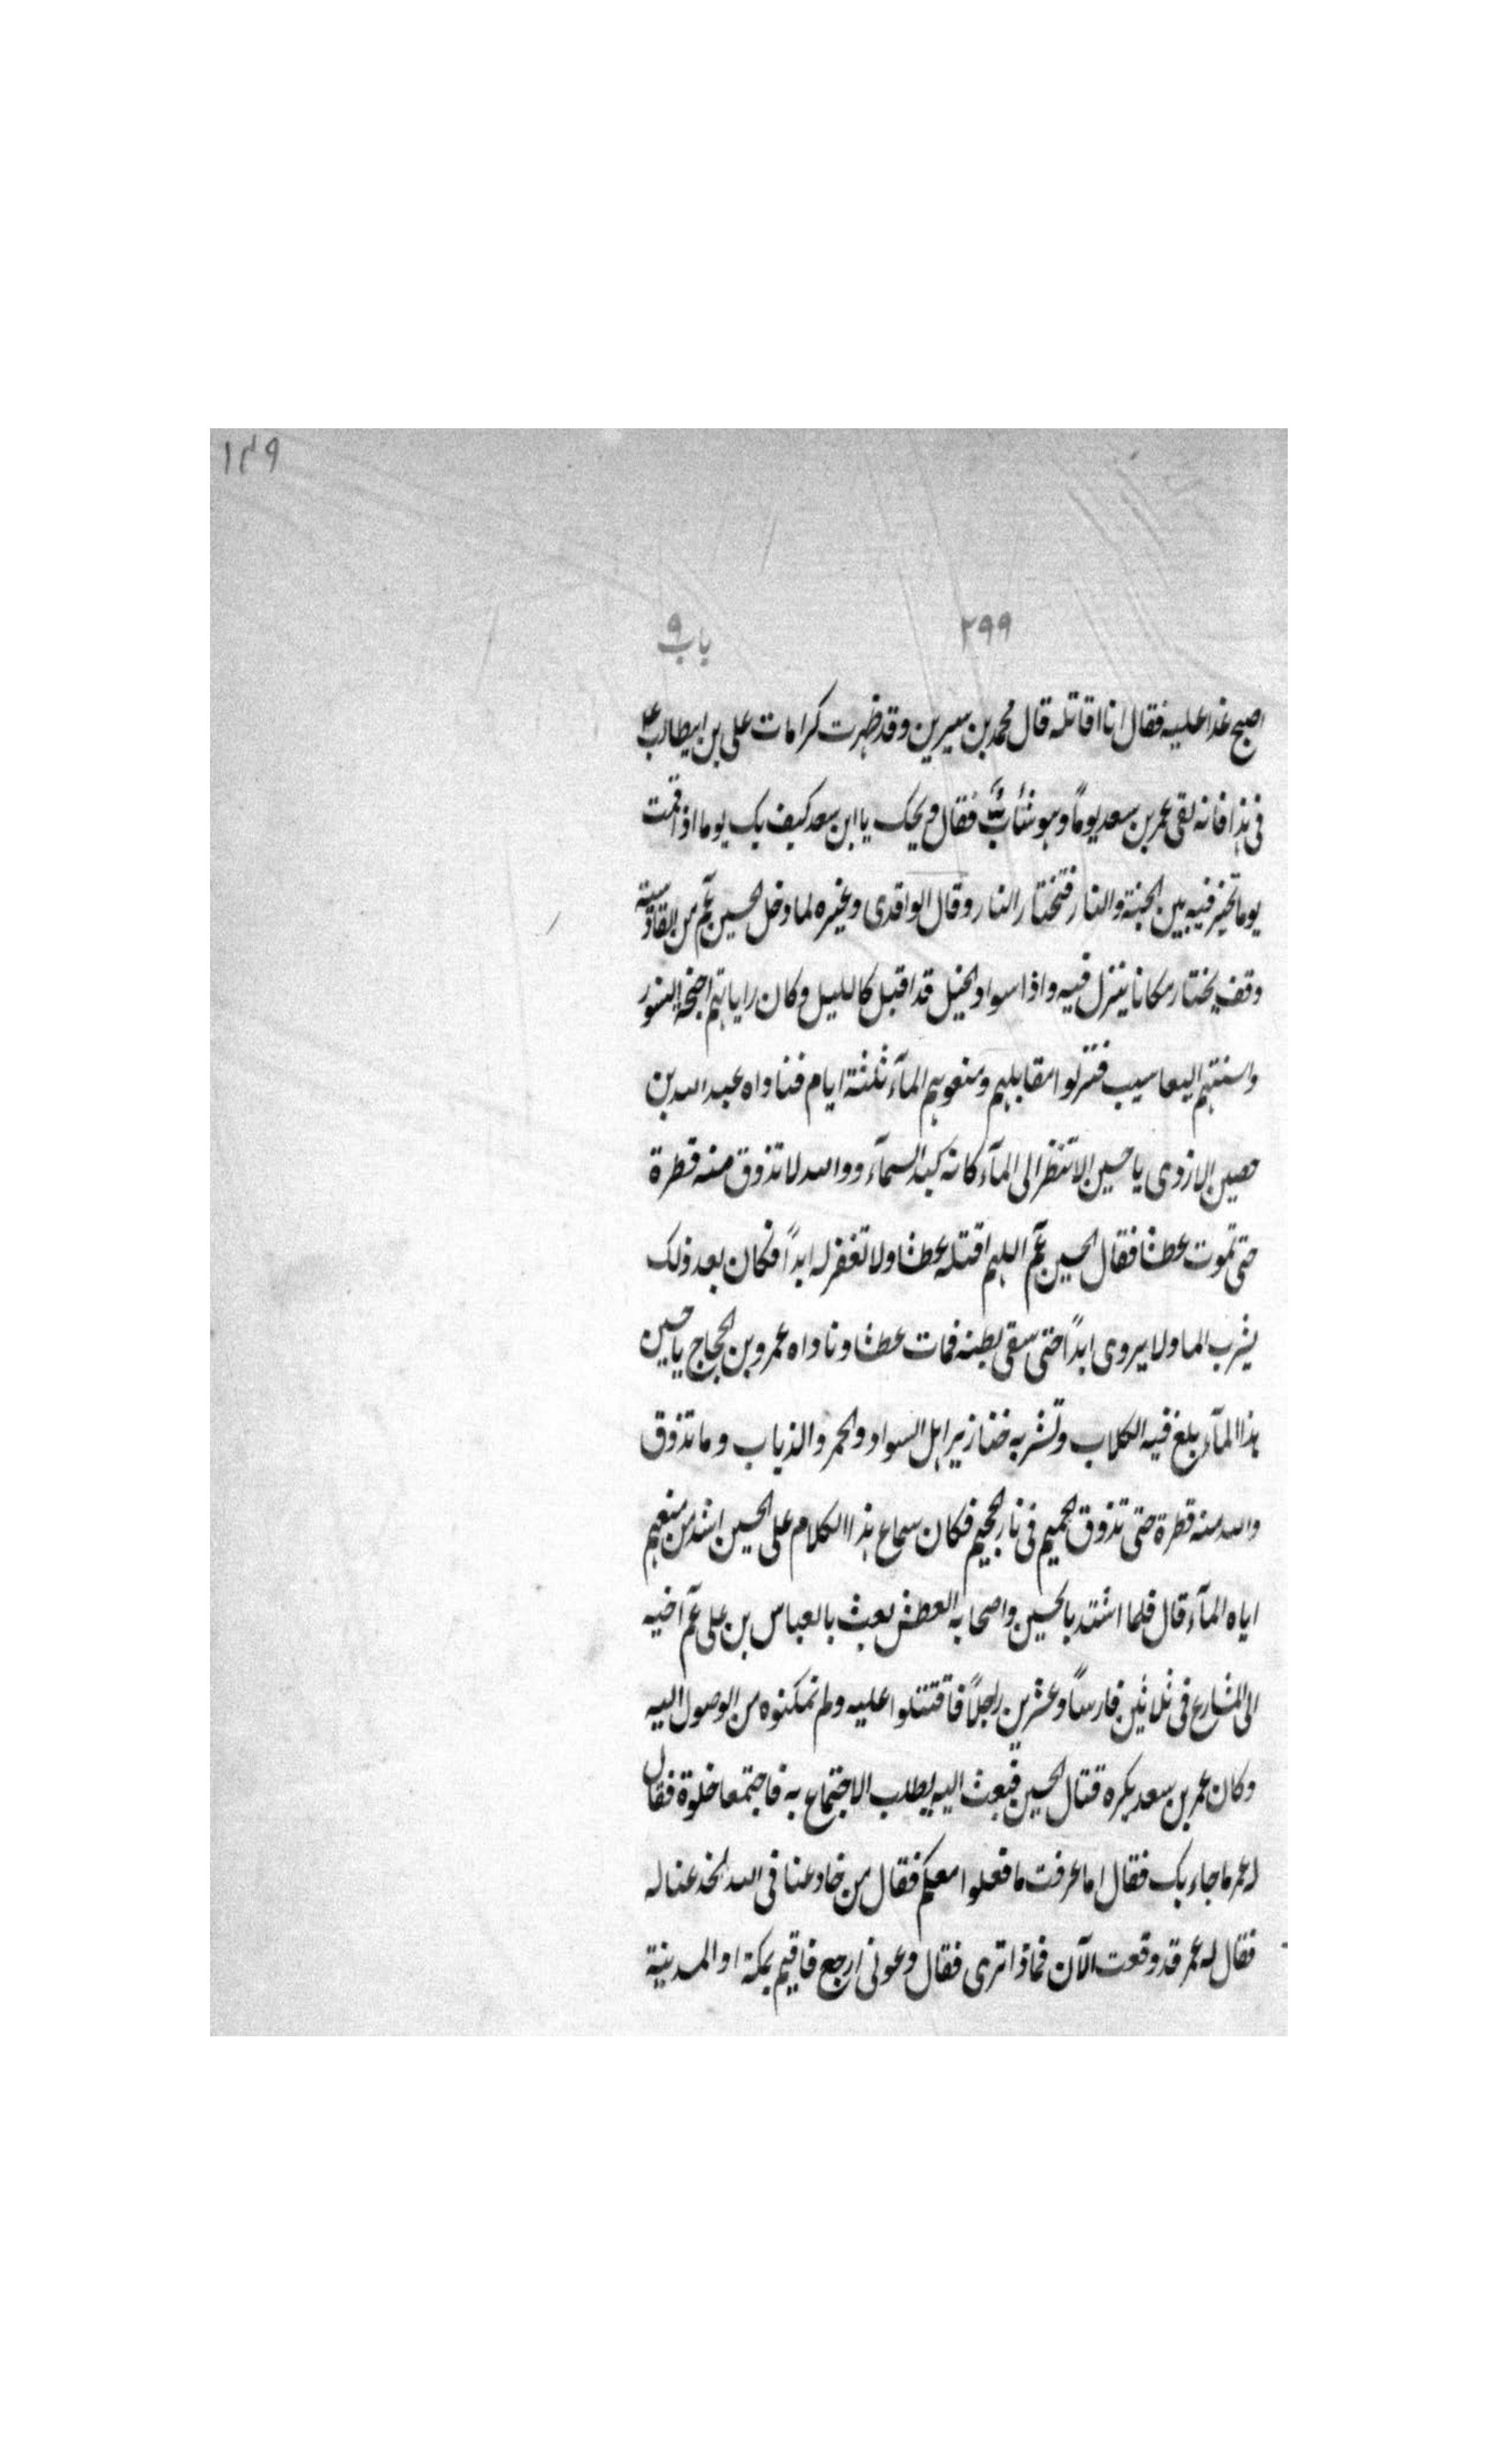 ١٤٩
٢٩٩ باب ٩
اصبح غدا عليه فقال انا اقاتله قال محمد بن سيرين وقد ظهرت كرامات على بن ابيطالب ع
فى هذا فانه لقى عمر بن سعد يوماً وهو شابٌ فقال ويحك يا ابن سعد كيف بك يوما اذا قمت
يوما تخير فيه بين الجنة والنار فتختار النار وقال الواقدى وغيره لما دخل الحسين عم من القادسية
وقف يختار مكانا ينزل فيه واذا سواد الخيل قد اقبل كالليل وكان راياتهم اجنحة النسور
واسنتهم اليعاسيب فنزلوا مقابلهم ومنعوهم المآء ثلثة ايام فناداه عبد الله بن
حصين الازدى يا حسين الا تنظر الى المآء كانه كبد السمآء ووالله لا تذوق منه قطرة
حتى تموت عطشا فقال الحسين عم اللهم اقتله عطشا ولا تغفر له ابداً فكان بعد ذلك
يشرب الما ولا يروى ابداً حتى سقى بطنه فمات عطشا وناداه عمرو بن الحجاج يا حسين
هذا المآء يلغ فيه الكلاب وتشربه خنازير اهل السواد والحمر والذياب وما تذوق
والله منه قطرة حتى تذوق الحميم فى نار الجحيم فكان سماع هذا الكلام على الحسين اشد من منعهم
اياه المآء قال فلما اشتد بالحسين واصحابه العطش بعث بالعباس بن على عم اخيه
الى المشارع فى ثلاثين فارساً وعشرين راجلاً فاقتتلوا عليه ولم نمكنوه من الوصول اليه
وكان عمر بن سعد يكره قتال الحسين فبعث اليه يطلب الاجتماع به فاجتمعا خلوة فقال
له عمر ما جاء بك فقال اما عرفت ما فعلوا معكم فقال من خادعنا فى الله انخدعنا له
فقال له عمر قد وقعت الآن فماذا ترى فقال دعونى ارجع فاقيم بمكة او المدينة